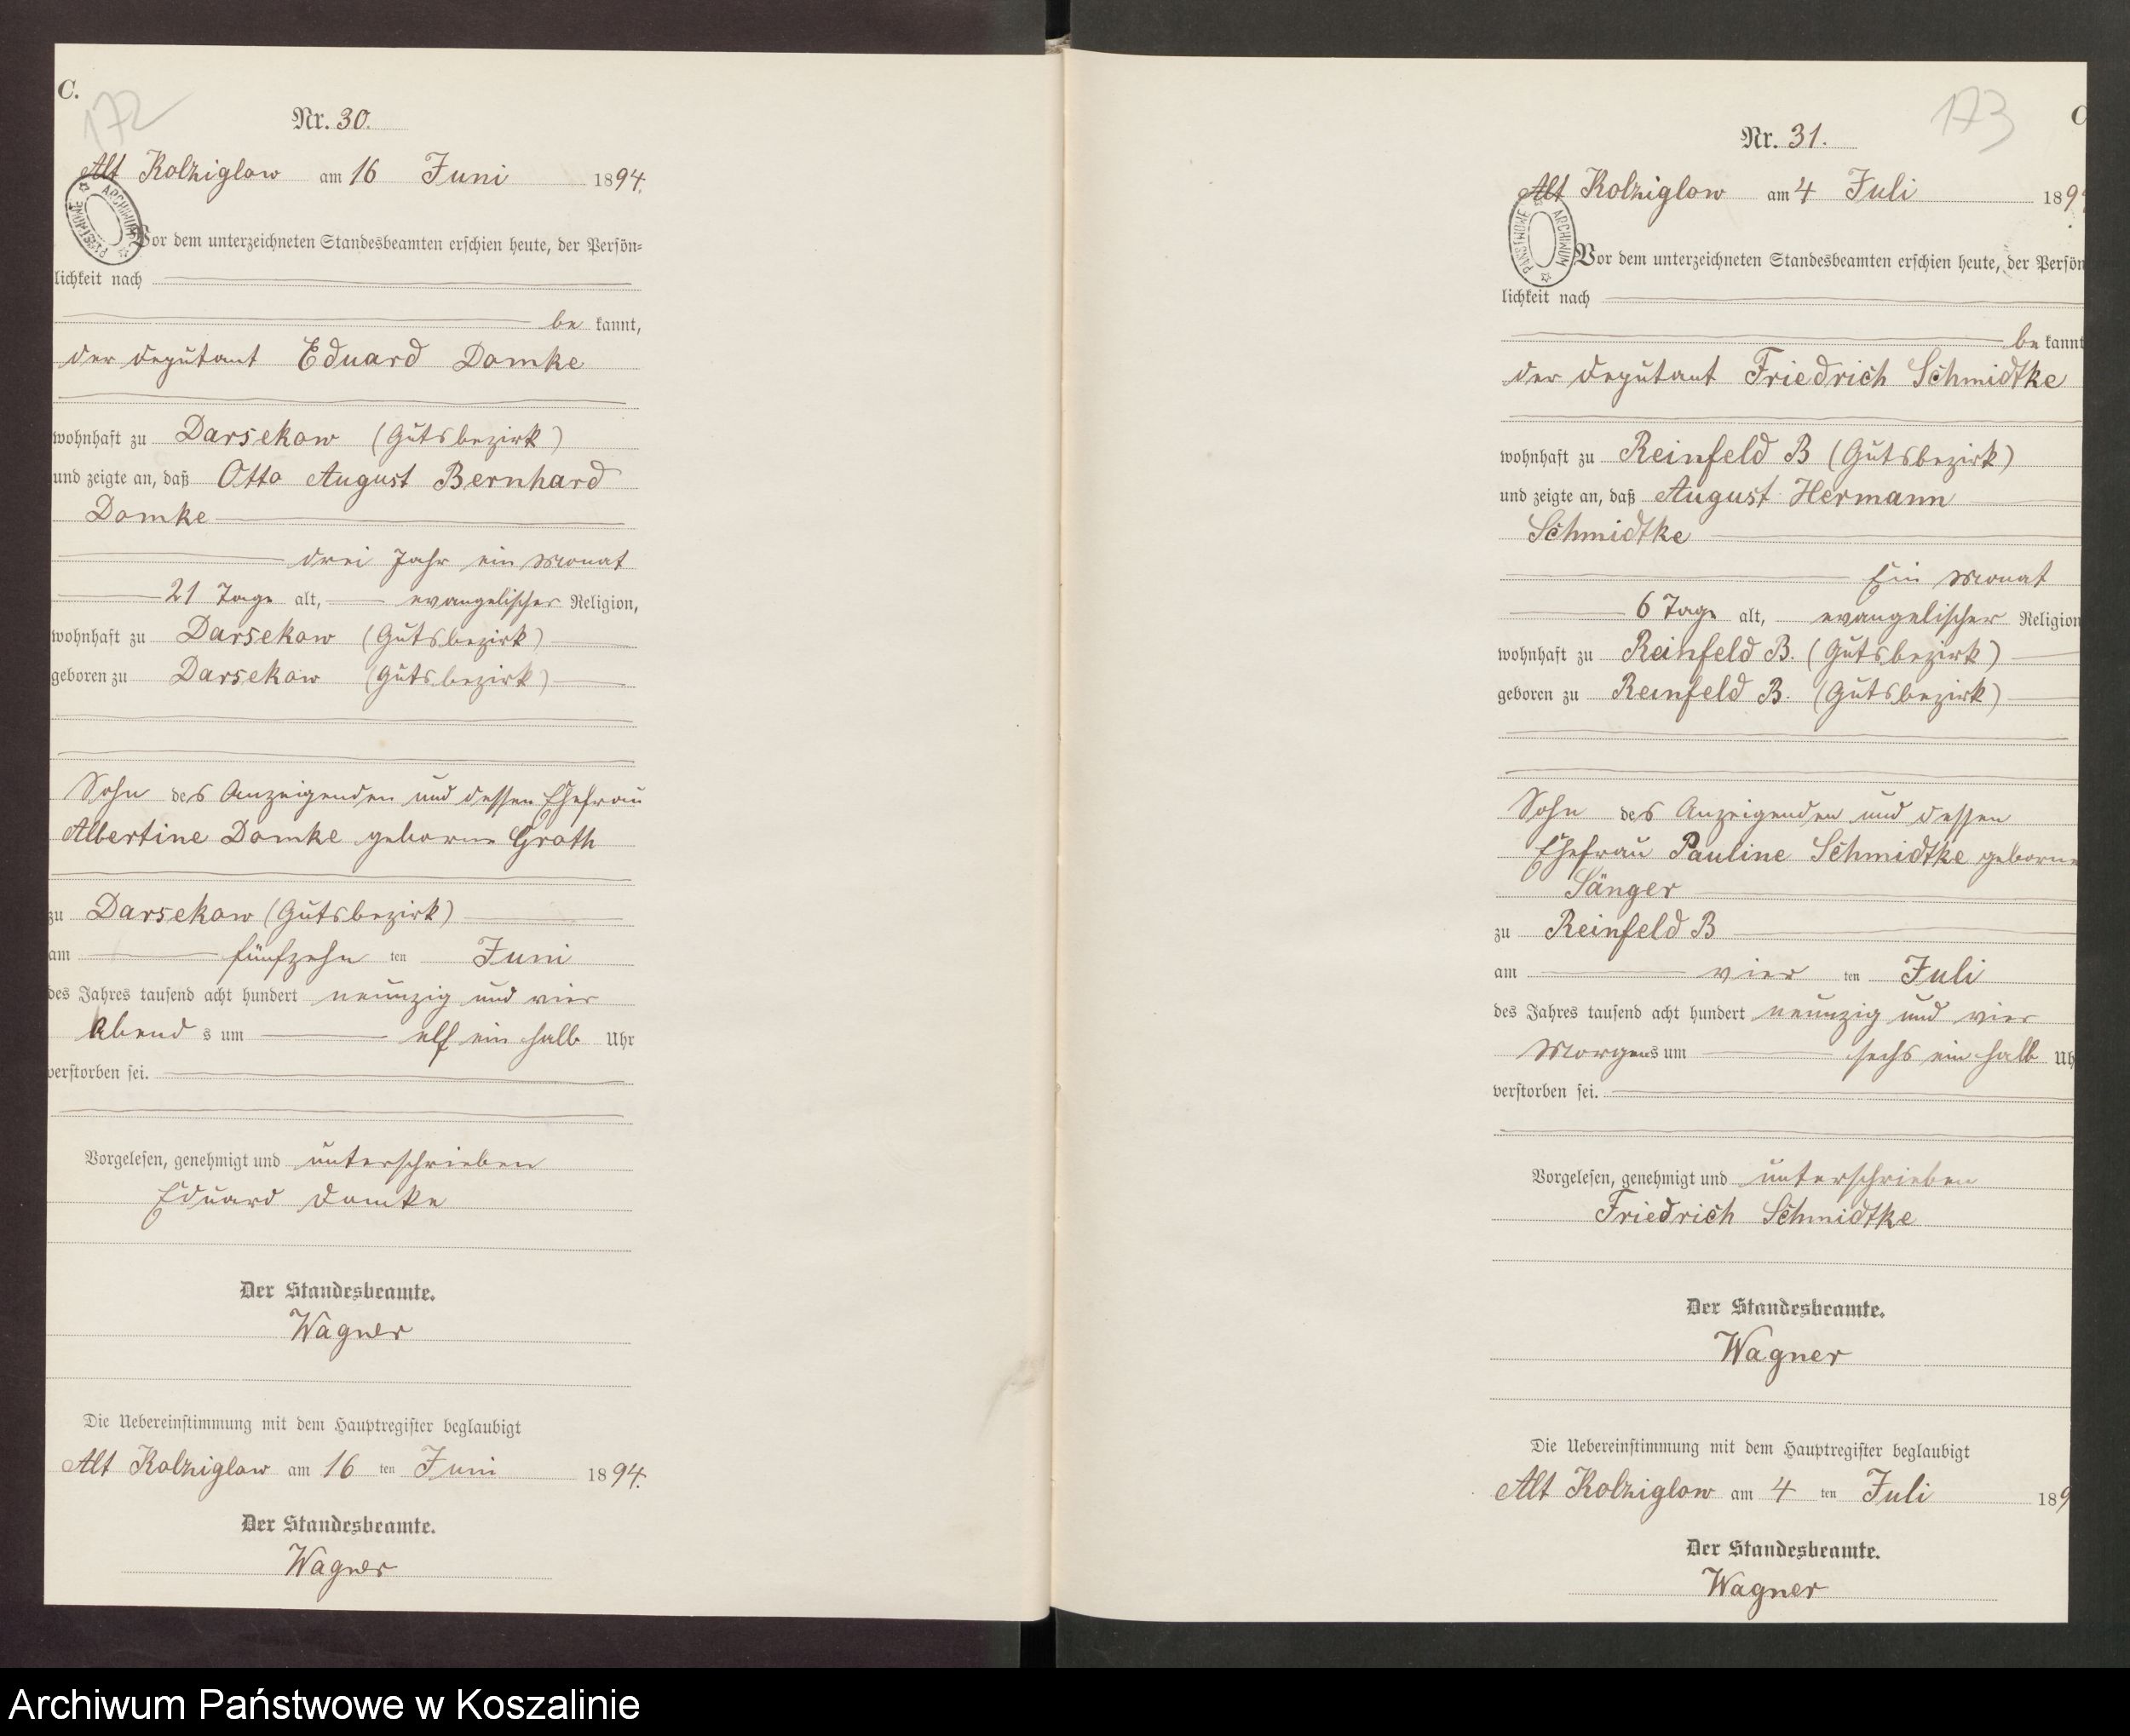 C.
172
Nr. 30.
Alt Kolziglow am 16 Juni 1894.
ARCHIWUM PAŃSTWOWE
Vor dem unterzeichneten Standesbeamten erschien heute, der Persön-
lichkeit nach
be kannt,
der Deputant Eduard Domke
wohnhaft zu Darsekow (Gutsbezirk)
und zeigte an, daß Otto August Bernhard
Domke
drei Jahr ein Monat
21 Tage alt, evangelischer Religion,
wohnhaft zu Darsekow (Gutsbezirk)
geboren zu Darsekow (Gutsbezirk)
Sohn des Anzeigenden und dessen Ehefrau
Albertine Domke geborne Groth
zu Darsekow (Gutsbezirk)
am fünfzehn ten Juni
des Jahres tausend acht hundert neunzig und vier
Abend s um elf ein halb Uhr
verstorben sei.
Vorgelesen, genehmigt und unterschrieben
Eduard Domke
Der Standesbeamte.
Wagner
Die Uebereinstimmung mit dem Hauptregister beglaubigt
Alt Kolziglow am 16 ten Juni 1894.
Der Standesbeamte.
Wagner
173
C
Nr. 31.
Alt Kolziglow am 4 Juli 189
ARCHIWUM PAŃSTWOWE
Vor dem unterzeichneten Standesbeamten erschien heute, der Persön
lichkeit nach
be kannt
der Deputant Friedrich Schmidtke
wohnhaft zu Reinfeld B (Gutsbezirk)
und zeigte an, daß August Hermann
Schmidtke
Ein Monat
6 Tage alt, evangelischer Religion
wohnhaft zu Reinfeld B. (Gutsbezirk)
geboren zu Reinfeld B. (Gutsbezirk)
Sohn des Anzeigenden und dessen
Ehefrau Pauline Schmidtke geborne
Sänger
zu Reinfeld B
am vier ten Juli
des Jahres tausend acht hundert neunzig und vier
Morgens um sechs ein halb Uh
verstorben sei.
Vorgelesen, genehmigt und unterschrieben
Friedrich Schmidtke
Der Standesbeamte.
Wagner
Die Uebereinstimmung mit dem Hauptregister beglaubigt
Alt Kolziglow am 4 ten Juli 189
Der Standesbeamte.
Wagner
Archiwum Państwowe w Koszalinie